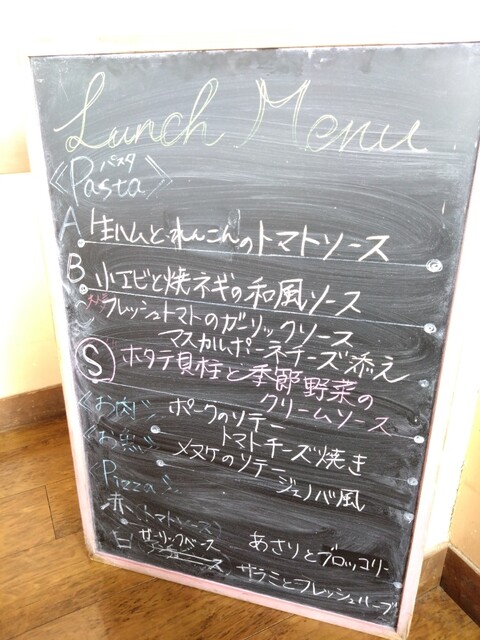 Lunch Menu
パスタ
《Pasta》
A 生ハムとれんこんのトマトソース
B 小エビと焼ネギの和風ソース
フレッシュトマトのガーリックソース
マスカルポーネチーズ添え
Ⓢ ホタテ貝柱と季節野菜の
クリームソース
《お肉》 ポークのソテー
トマトチーズ焼き
《お魚》 メヌケのソテー
ジェノバ風
《Pizza》
赤 (トマトソース) あさりとブロッコリー
白 ガーリックベース
サラミとフレッシュハーブ